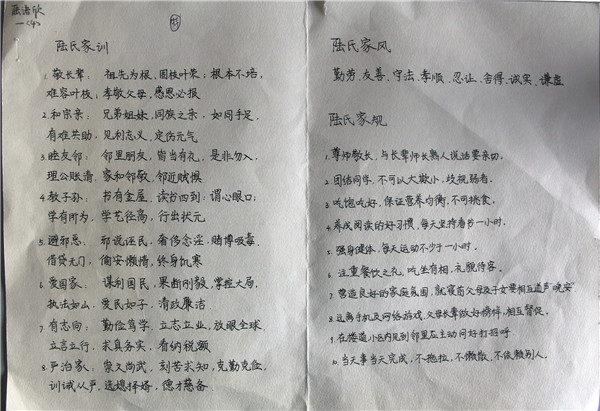 陆浩欣
一(4)
陆氏家训
1.敬长辈: 祖先为根,固枝叶荣;根本不培,
难容叶枝;孝敬父母,感恩必报
2.和宗亲: 兄弟姐妹,同族之亲,如同手足,
有难共助,见利忘义,定伤元气
3.睦友邻: 邻里朋友,皆当有礼,是非勿入,
理公账清,家和邻敬,邻近贼惧
4.教子孙: 书有金屋,读书四到:谓心眼口;
学有所为,学艺径高,行出状元
5.避邪恶: 邪说诬民,奢侈念淫,赌博吸毒,
借贷无门,偷安懒惰,终身饥寒
6.爱国家: 谋利国民,果断刚毅,掌控大局,
执法如山,爱民如子,清政廉洁
7.有志向: 勤俭笃学,立志立业,放眼全球,
立言立行,求真务实,看纳税额
8.严治家: 崇文尚武,刻苦求知,克勤克俭,
训诫从严,选媳择婿,德才兼备
陆氏家风
勤劳、友善、守法、孝顺、忍让、舍得、诚实、谦虚
陆氏家规
1.尊师敬长,与长辈师长熟人说话要亲切.
2.团结同学,不可以大欺小,歧视弱者.
3.吃饱吃好,保证营养均衡,不可挑食.
4.养成阅读的好习惯,每天坚持看书一小时.
5.强身健体,每天运动不少于一小时.
6.注重餐饮之礼,吃坐有相,礼貌待客.
7.营造良好的家庭氛围,就寝前父母及子女要相互道声"晚安".
8.远离手机及网络游戏,父母长辈做好榜样,相互督促.
9.在楼道小区内见到邻里应主动问好打招呼.
10.当天事当天完成,不拖拉,不懒散,不依赖别人.